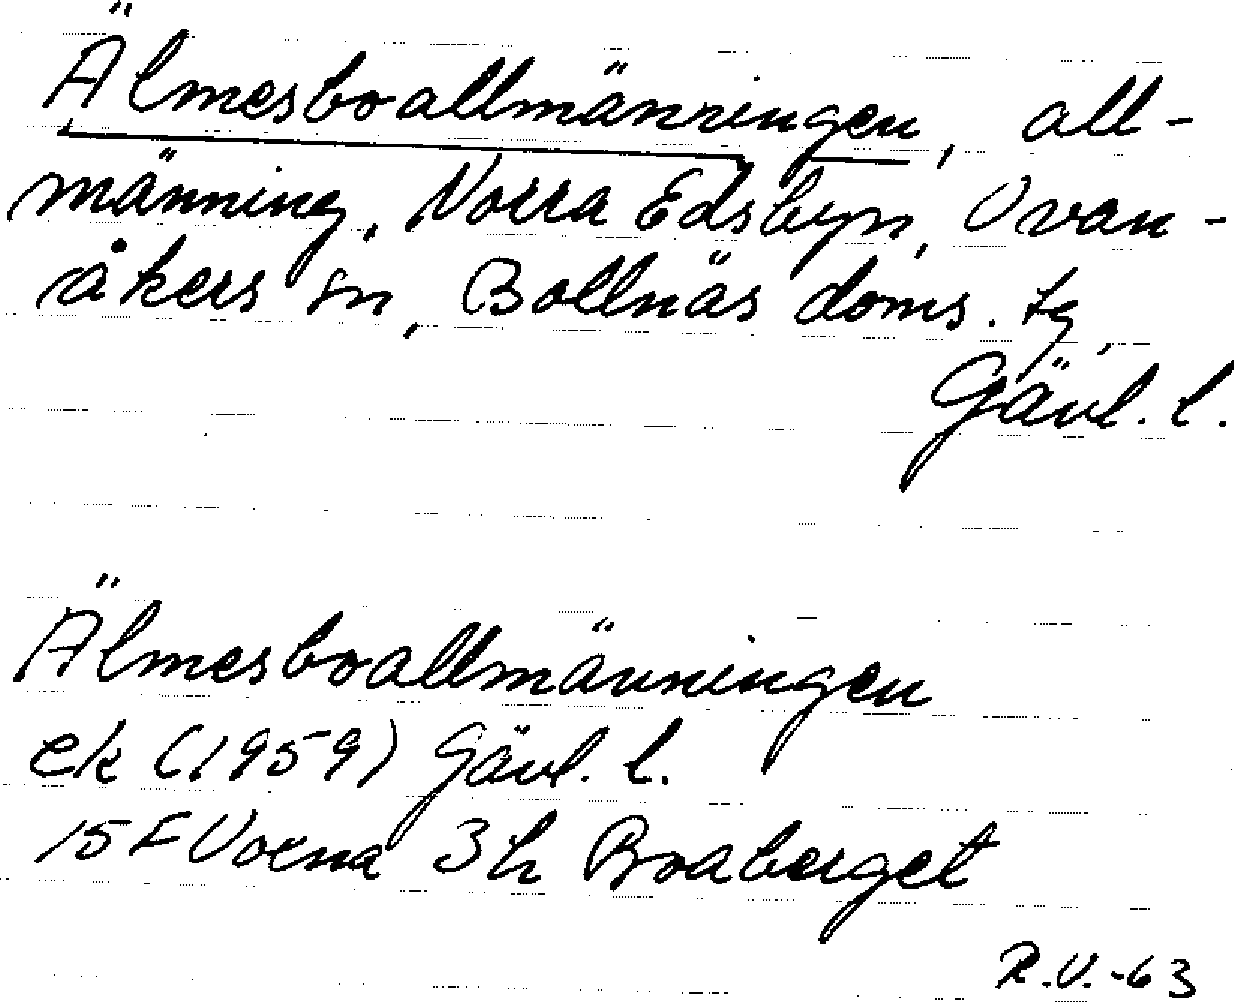 Älmesboallmänningen, all-
männing, Norra Edsbyn, Ovan-
åkers sn, Bollnäs doms. tg,
Gävl. l.
Älmesboallmänningen
ek (1959) Gävl. l.
15 F Voxna 3h Boaberget
R.V.-63